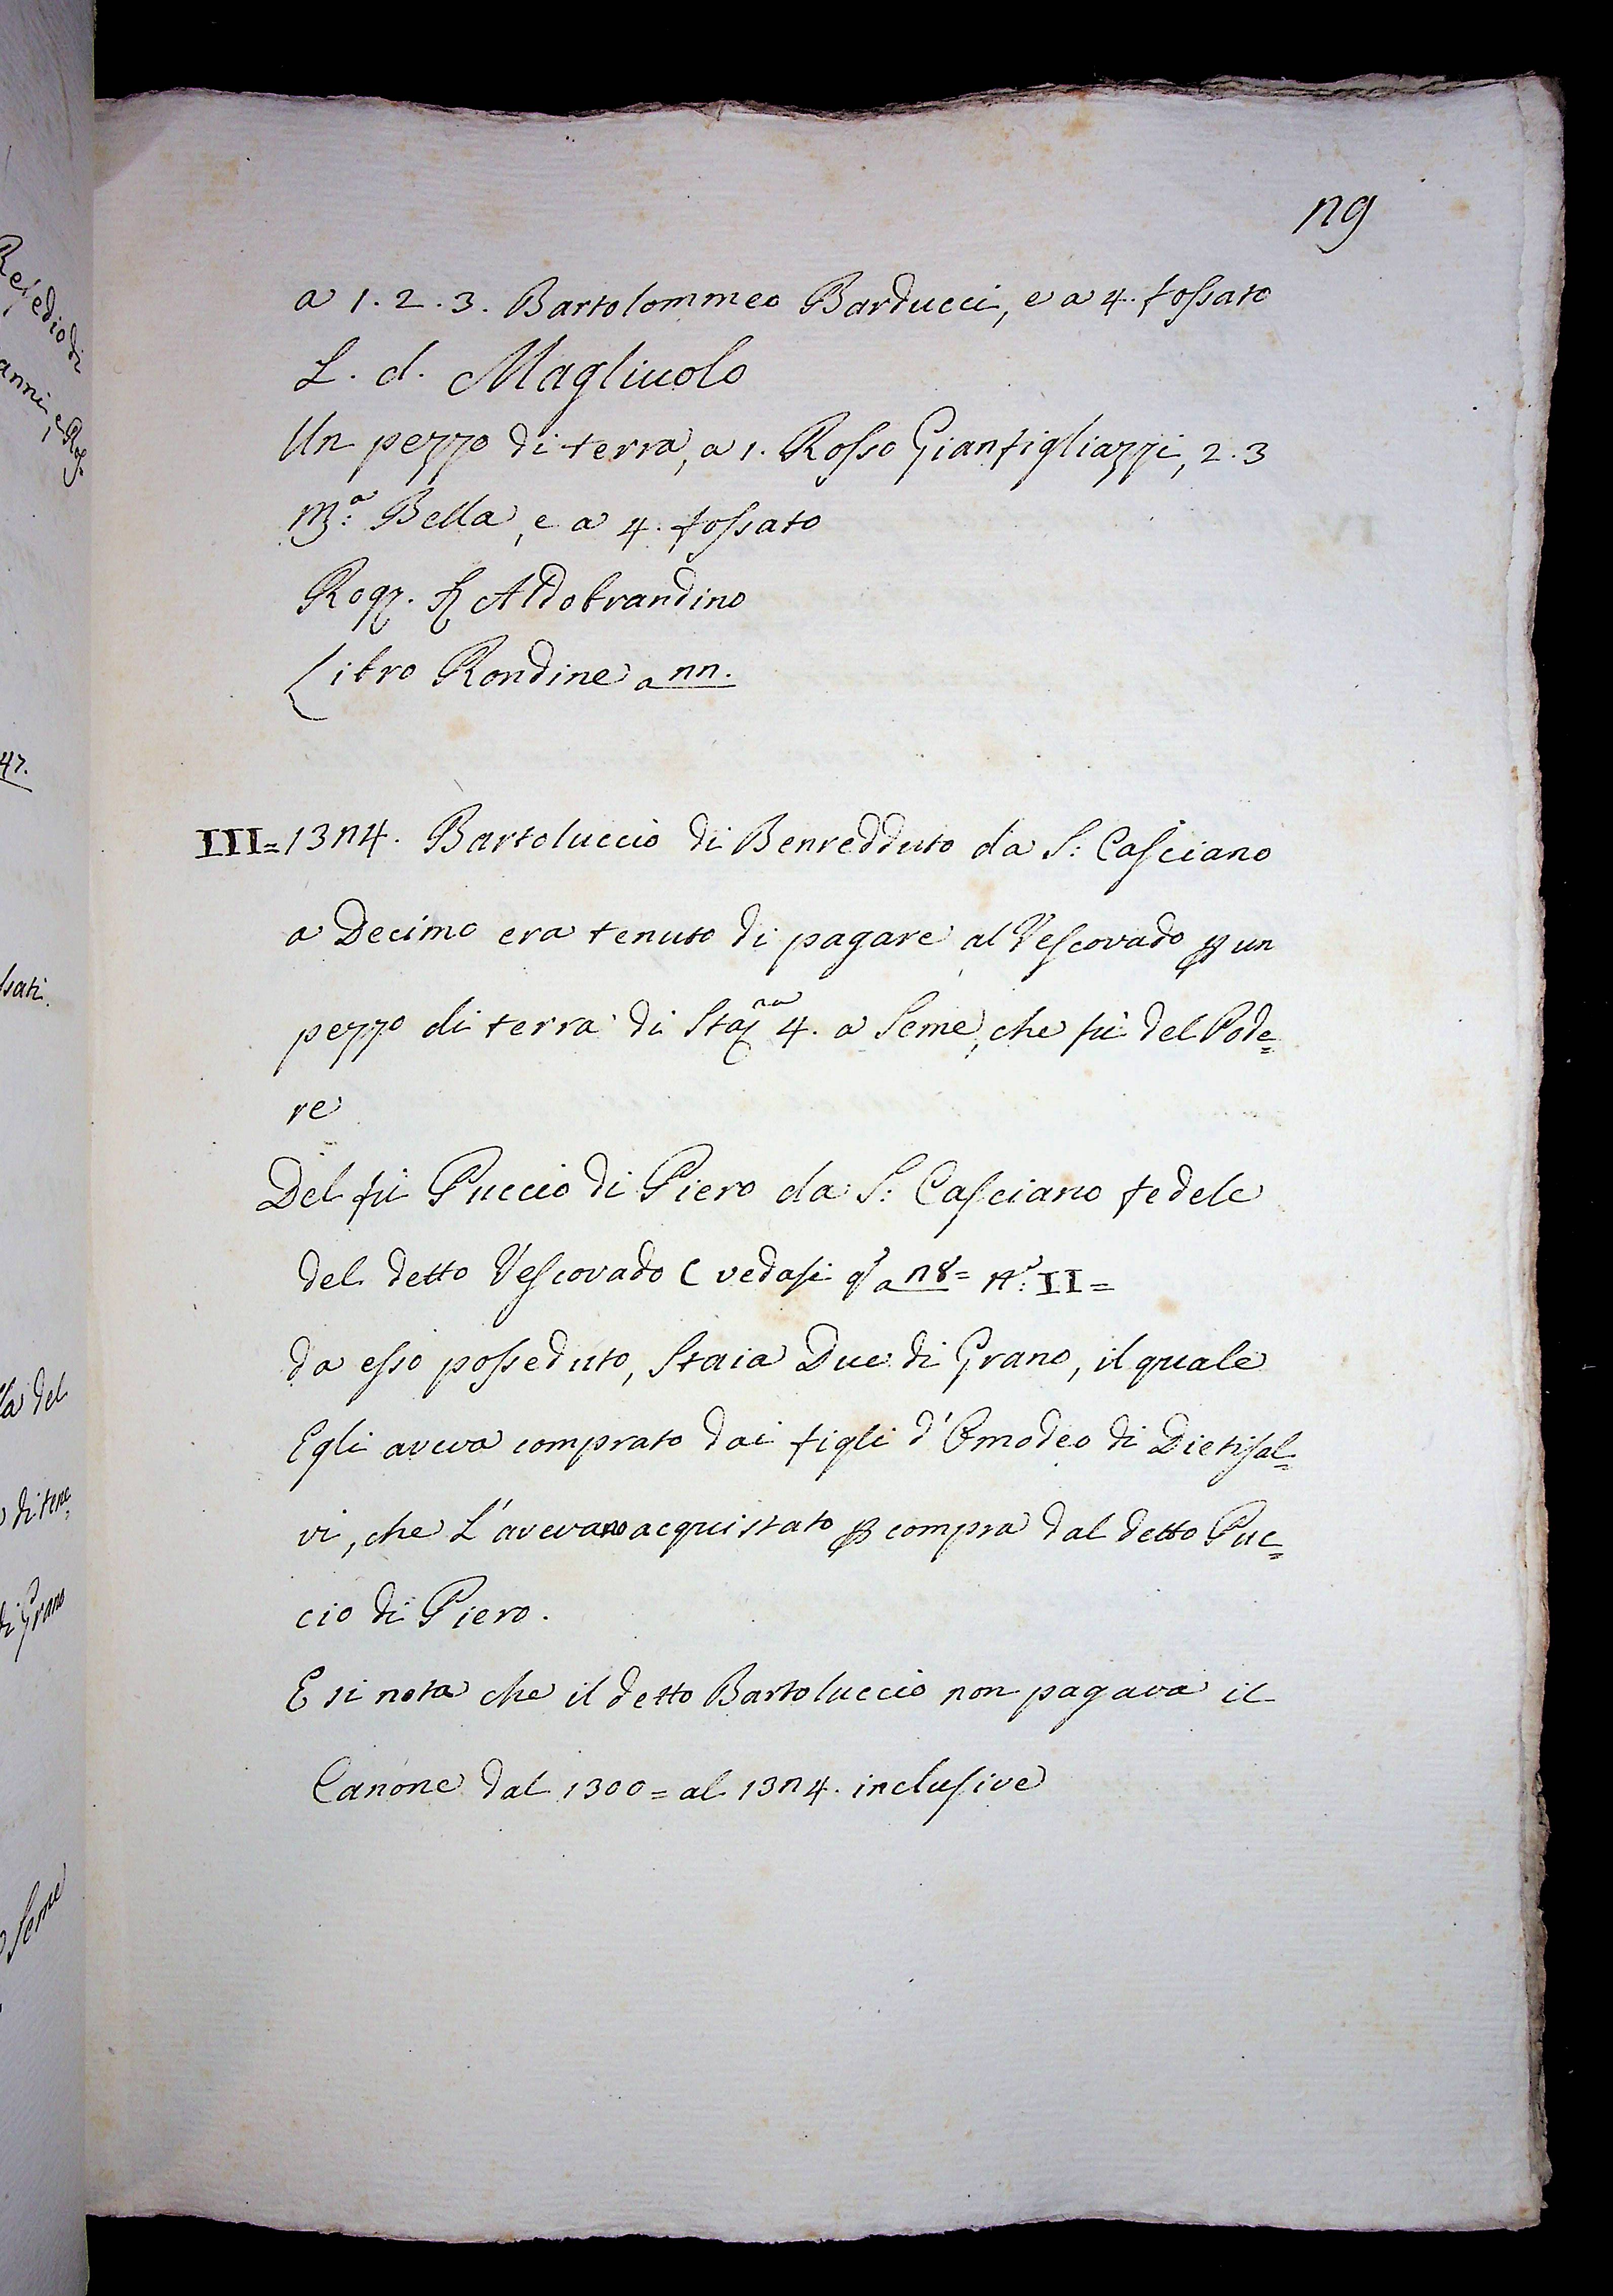 29
a 1. 2. 3. Bartolommeo Barducci, e a 4. fossato
L. d. Magliuolo
Un pezzo di terra, a 1. Rosso Gianfigliazzi, 2. 3
M:ª Bella, e a 4. fossato
Rogº. Aldobrandino
Libro Rondine a 22.
III = 1324. Bartoluccio di Benredduto da S: Casciano
a Decimo era tenuto di pagare al Vescovado ꝑ un
pezzo di terra di Staª 4. a Seme, che fù del Pode=
re
Del fù Puccio di Piero da S: Casciano fedele
del detto Vescovado ( vedasi qº a 28 = Nº: II =
da esso posseduto, Staia Due di Grano, il quale
Egli aveva comprato dai figli d'Omodeo di Dietisal=
vi, che L'avevano acquistato ꝑ compra dal detto Puc=
cio di Piero.
E si nota che il detto Bartoluccio non pagava il
Canone dal 1300 = al 1324. inclusive
47.
ssati.
la del
di Grano
Seme